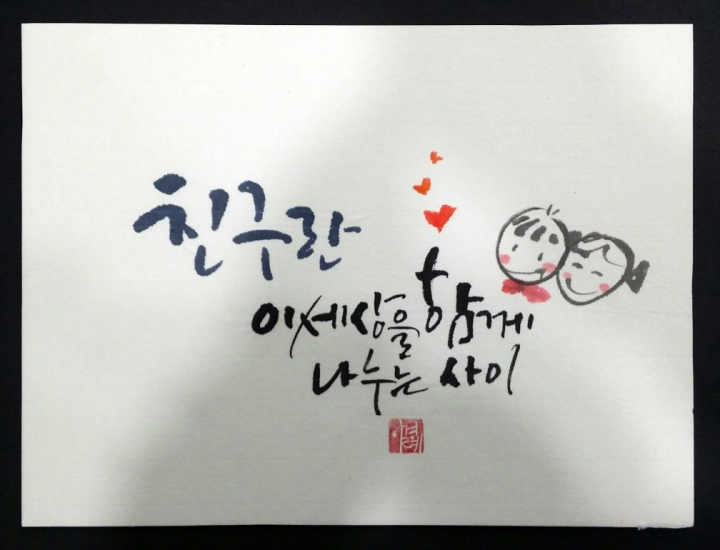 친구란
이세상을 함께
나누는 사이